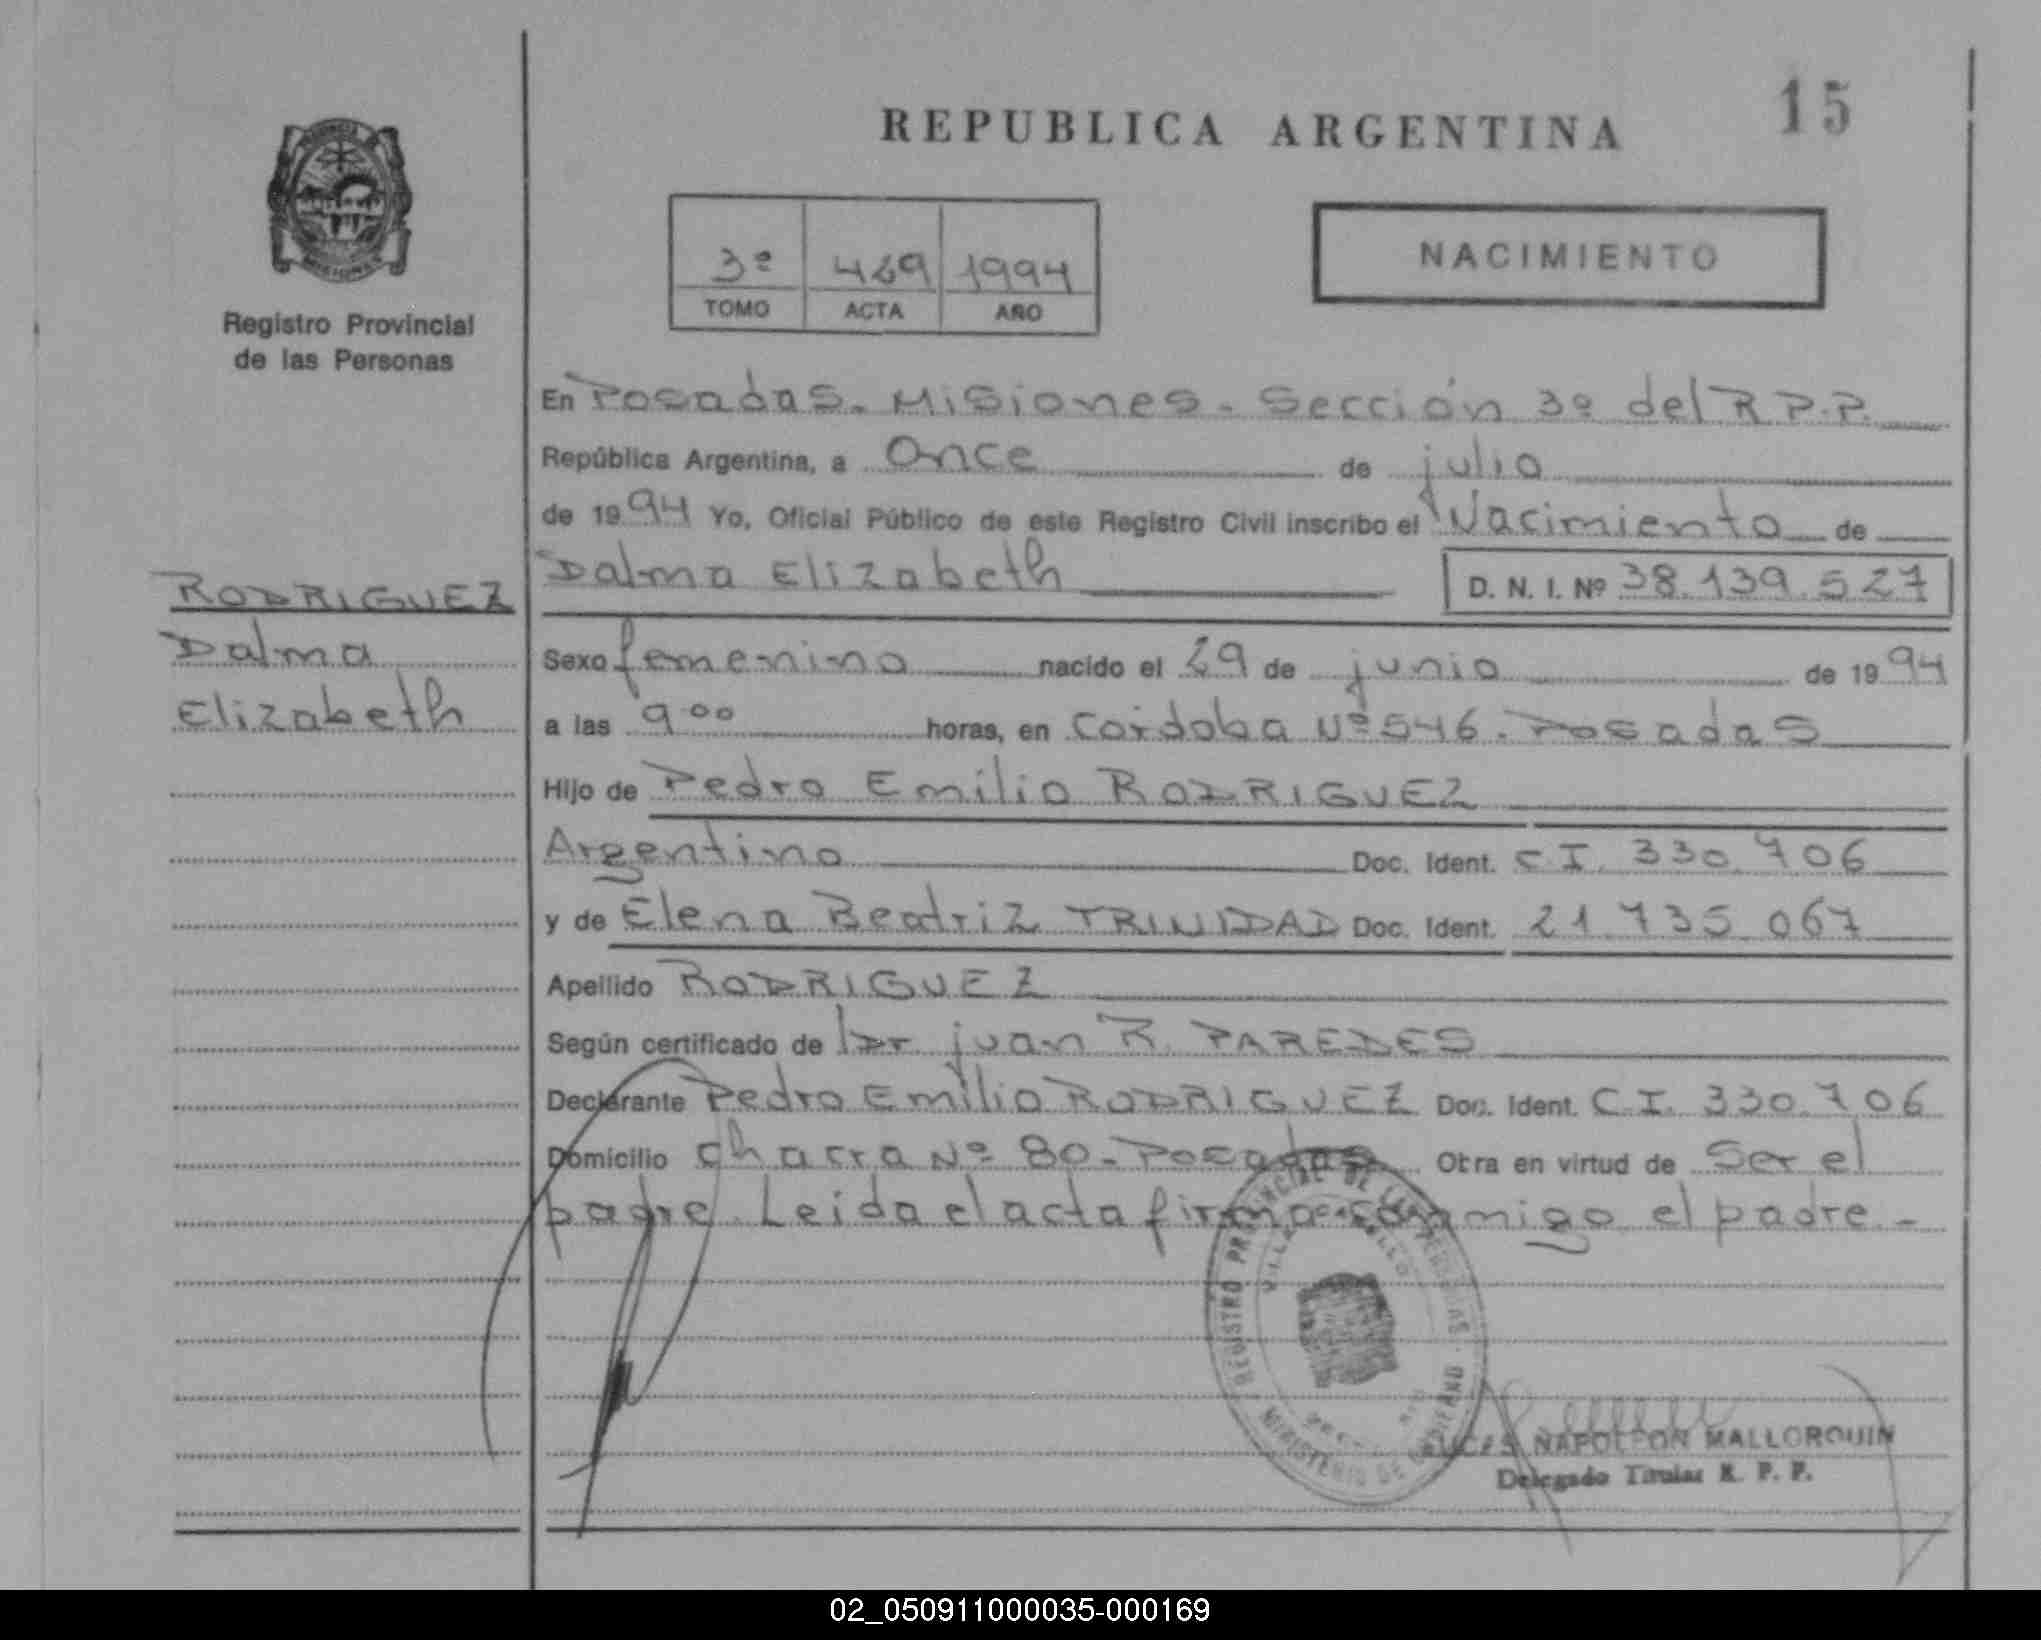 15
REPUBLICA ARGENTINA
NACIMIENTO
3º 429 1994
TOMO ACTA AÑO
Registro Provincial
de las Personas
En Posadas. Misiones. Sección 3º del R.P.P.
República Argentina, a Once de julio
de 1994 Yo, Oficial Público de este Registro Civil inscribo el Nacimiento de
Dalma Elizabeth D. N. I. Nº 38.139.527
RODRIGUEZ
Dalma
Elizabeth
Sexo femenino nacido el 29 de junio de 1994
a las 9 00 horas, en Cordoba Nº 546. Posadas
Hijo de Pedro Emilio RODRIGUEZ
Argentino Doc. Ident. C.I. 330.706
y de Elena Beatriz TRINIDAD Doc. Ident. 21.735.067
Apellido RODRIGUEZ
Según certificado de Dr juan R. PAREDES
Declarante Pedro Emilio RODRIGUEZ Doc. Ident. C.I. 330.706
Domicilio Chacra Nº 80. Posadas Obra en virtud de Ser el
padre. Leida el acta firma conmigo el padre.-
REGISTRO PROVINCIAL DE LAS PERSONAS
MINISTERIO DE GOBIERNO
NAPOLEON MALLORQUIN
Delegado Titular R. P. P.
02_050911000035-000169